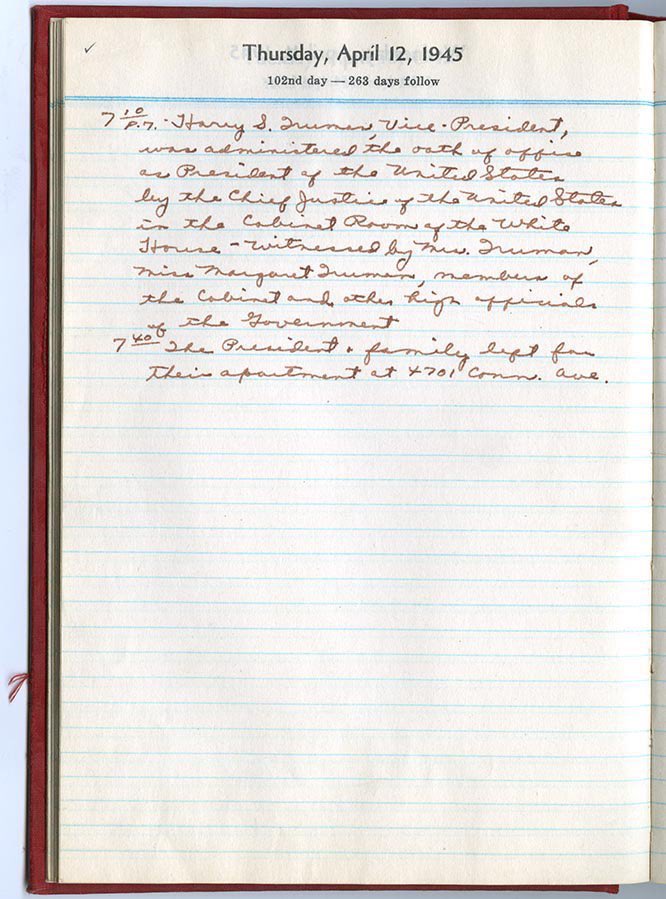 Thursday, April 12, 1945
102nd day — 263 days follow
7 10 P.M. - Harry S. Truman, Vice-President,
was administered the oath of office
as President of the United States
by the Chief Justice of the United States
in the Cabinet Room of the White
House - witnessed by Mrs. Truman,
Miss Margaret Truman, members of
the Cabinet and other high officials
of the Government
7 40 The President & family left for
their apartment at 4701 Conn. Ave.